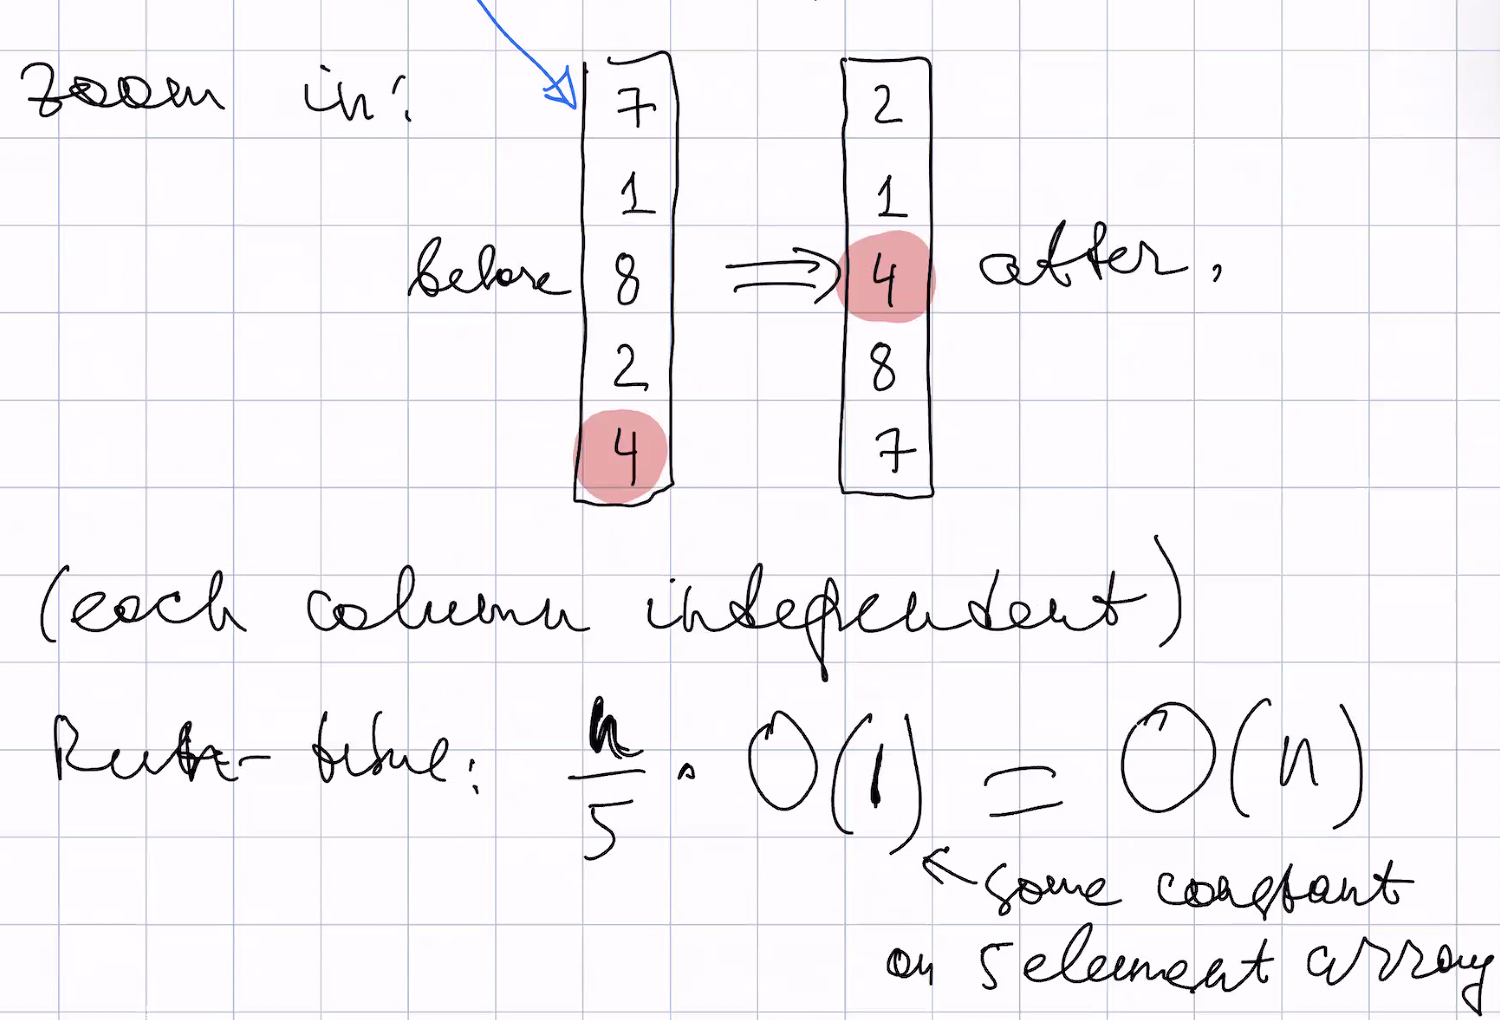 Zoom in:
7 2
1 1
before 8 ⟹ 4 after,
2 8
4 7
(each column independent)
Run-time: n/5 · O(1) = O(n)
← some constant
on 5 element array